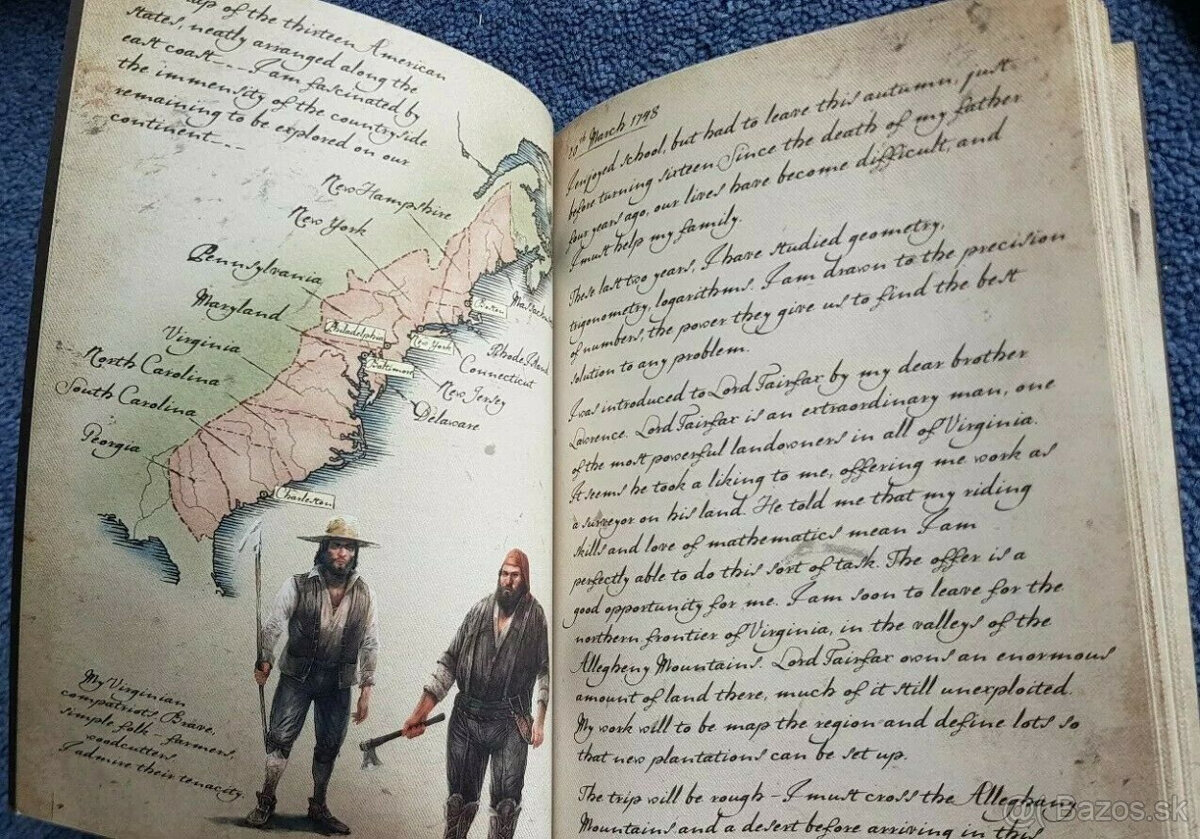 map of the thirteen American
states, neatly arranged along the
east coast--- I am fascinated by
the immensity of the countryside
remaining to be explored on our
continent---
New Hampshire
New York
Pennsylvania
Maryland
Virginia
North Carolina
South Carolina
Georgia
Boston
Philadelphia
New York
Baltimore
Rhode Island
Connecticut
New Jersey
Delaware
Charleston
My Virginian
compatriots. Brave,
simple folk - farmers,
woodcutters.
I admire their tenacity.
10th March 1748
I enjoyed school, but had to leave this autumn, just
before turning sixteen. Since the death of my father
four years ago, our lives have become difficult, and
I must help my family.
These last two years, I have studied geometry,
trigonometry, logarithms. I am drawn to the precision
of numbers, the power they give us to find the best
solution to any problem.
I was introduced to Lord Fairfax by my dear brother
Lawrence. Lord Fairfax is an extraordinary man, one
of the most powerful landowners in all of Virginia.
It seems he took a liking to me, offering me work as
a surveyor on his land. He told me that my riding
skills and love of mathematics mean I am
perfectly able to do this sort of task. The offer is a
good opportunity for me. I am soon to leave for the
northern frontier of Virginia, in the valleys of the
Allegheny Mountains. Lord Fairfax owns an enormous
amount of land there, much of it still unexploited.
My work will to be map the region and define lots so
that new plantations can be set up.
The trip will be rough - I must cross the Alleghany
Mountains and a desert before arriving in this
Bazos.sk